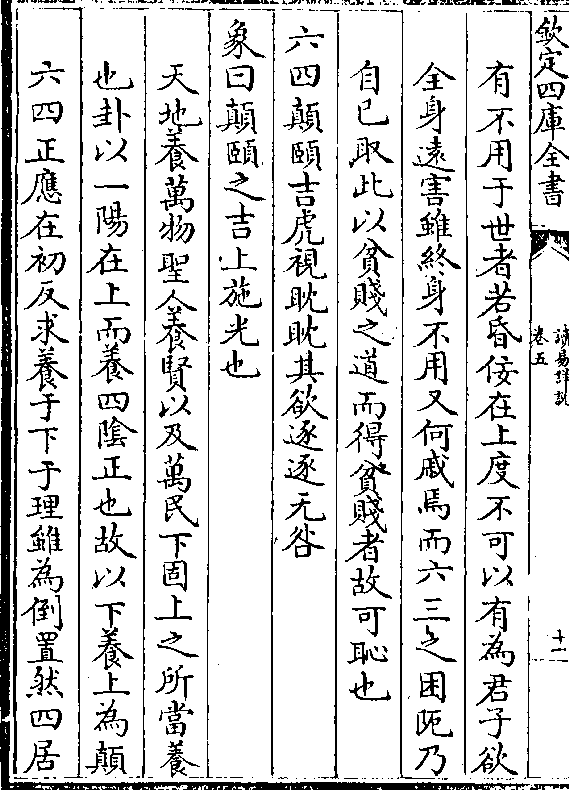 欽定四庫全書
讀易詳說
卷五
十一
有不用于世者若昏佞在上度不可以有為君子欲
全身遠害雖終身不用又何戚焉而六三之困阨乃
自已取此以貧賤之道而得貧賤者故可恥也
六四顛頤吉虎視眈眈其欲逐逐无咎
象曰顛頤之吉上施光也
天地養萬物聖人養賢以及萬民下固上之所當養
也卦以一陽在上而養四陰正也故以下養上為顛
六四正應在初反求養于下于理雖為倒置然四居